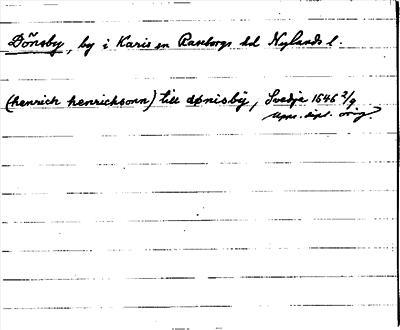 Dönsby, by i Karis sn Raseborgs hd Nylands l.
(henrich henrichsonn) till dønisby, Svedja 1646 2/9
Upps. dipl. orig